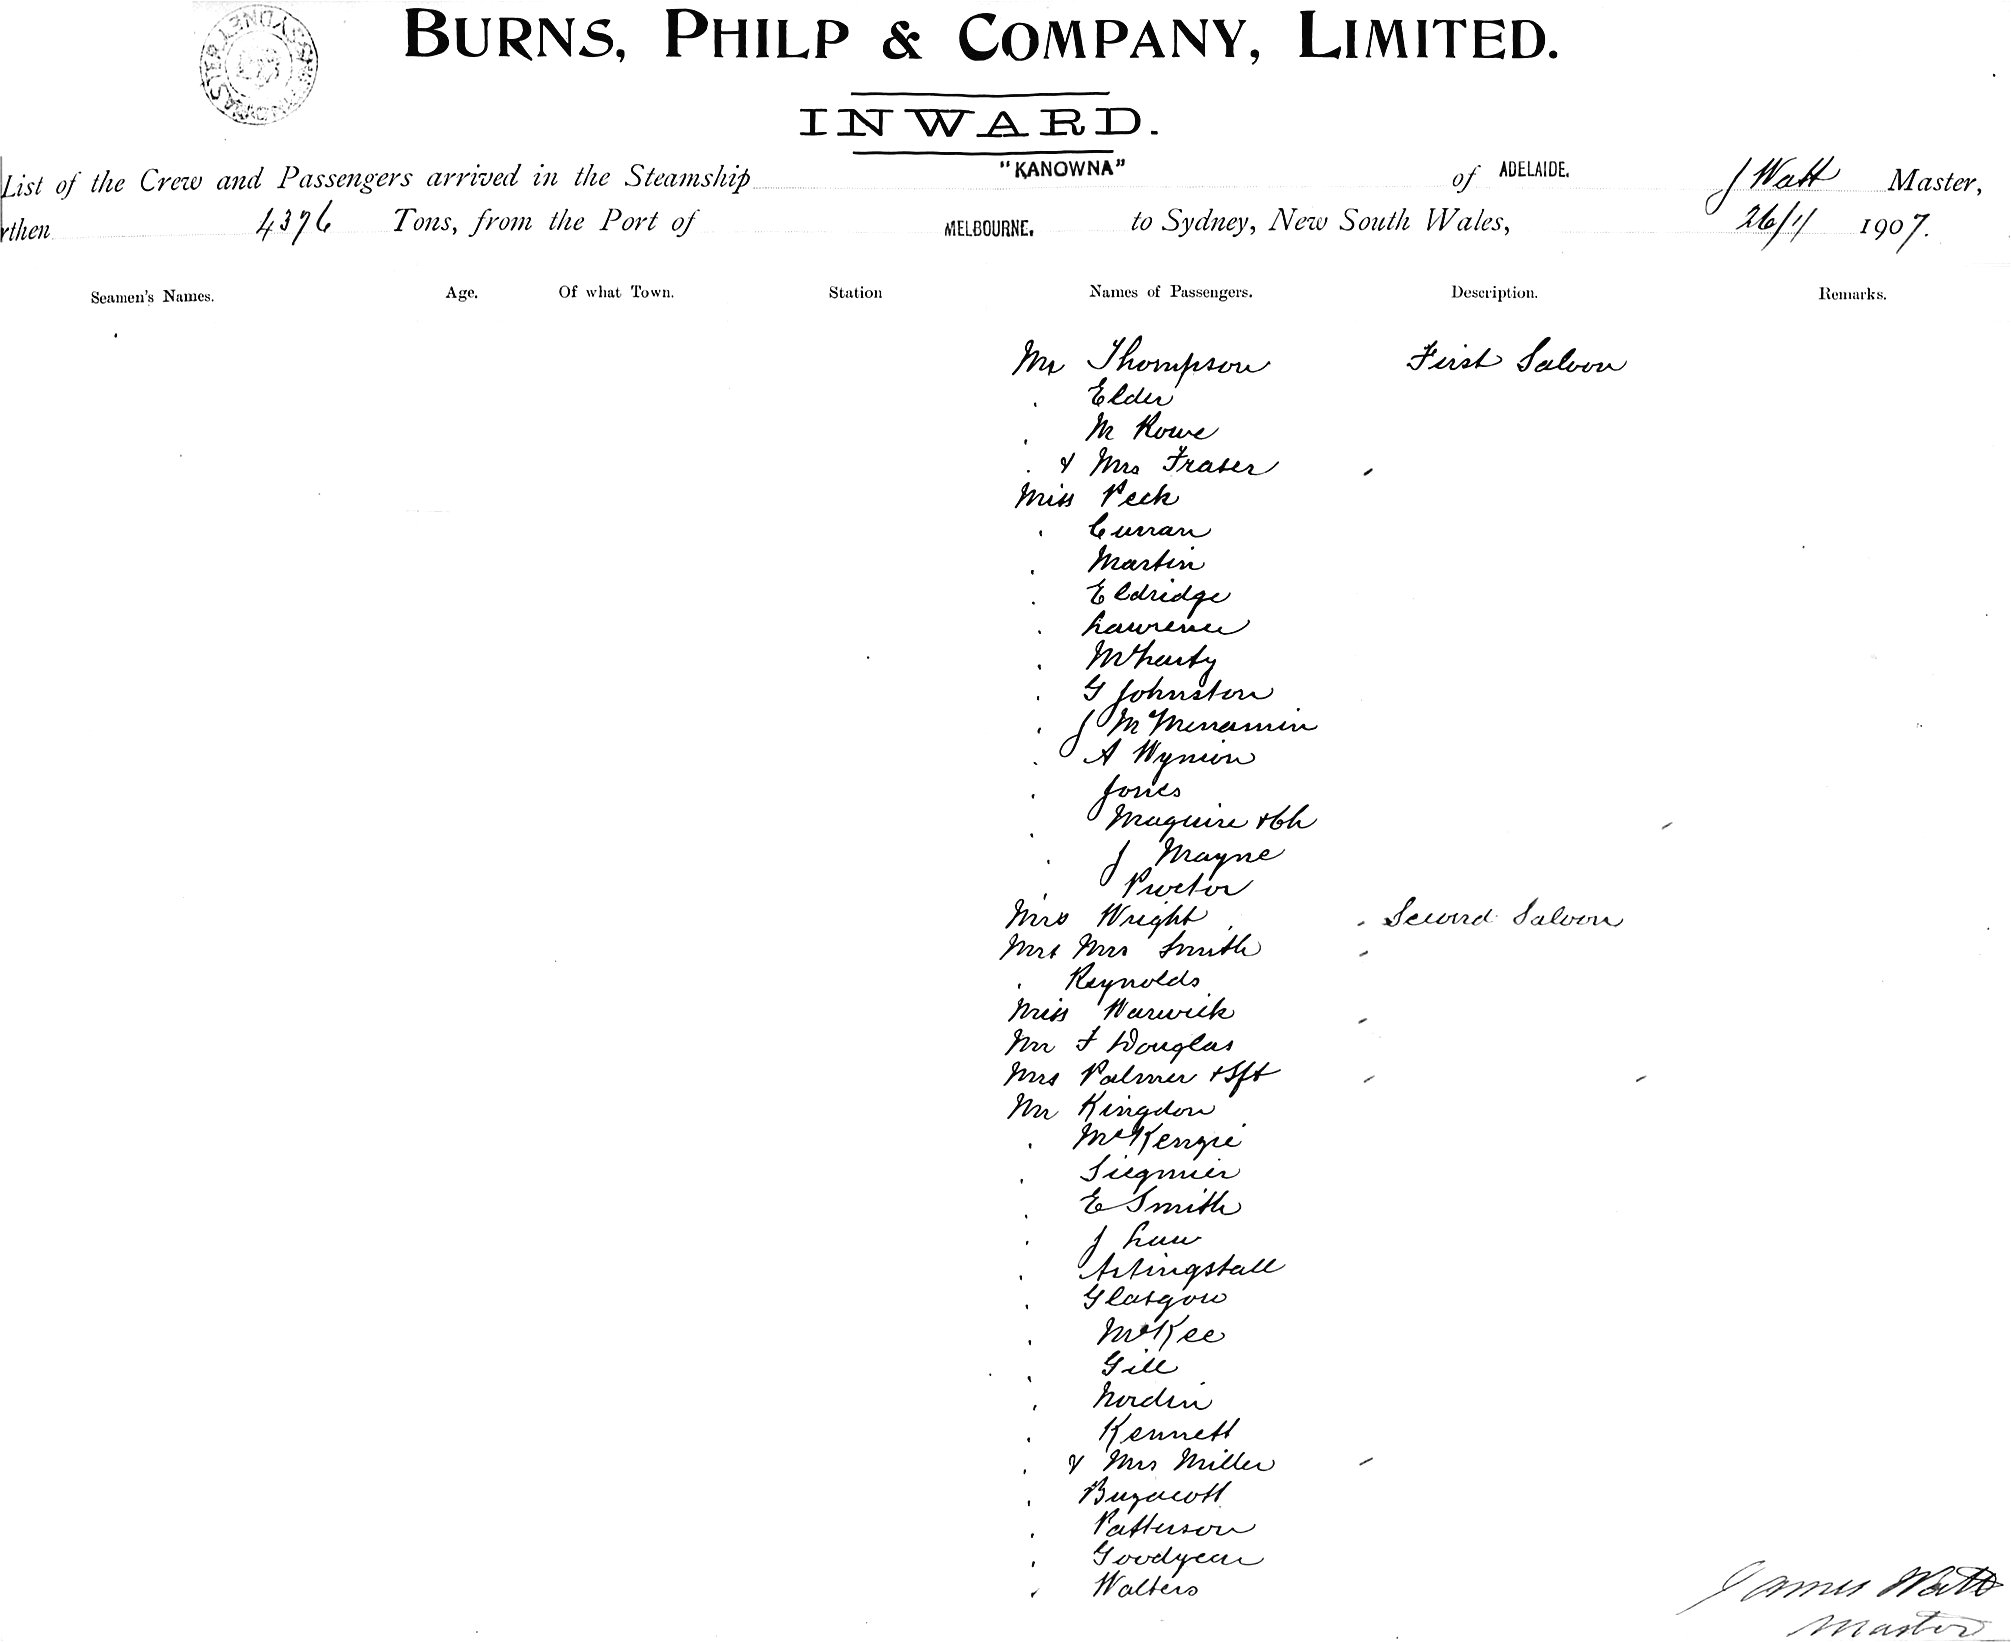 BURNS, PHILP & COMPANY, LIMITED.
INWARD.
List of the Crew and Passengers arrived in the Steamship "KANOWNA" of ADELAIDE. J Watt Master,
rthen 4376 Tons, from the Port of MELBOURNE. to Sydney, New South Wales, 26/11 1907.
Seamen's Names. Age. Of what Town. Station Names of Passengers. Description. Remarks.
Mr Thompson First Saloon
Elder
M Rowe
& Mrs Fraser
Miss Peck
Curran
Martin
Eldridge
Lawrence
G Johnston
J McMenamin
A Wynion
Jones
Maguire & Ch
J Mayne
Proctor
Mrs Wright Second Saloon
Mr & Mrs Smith
Reynolds
Miss Warwick
Mr F Douglas
Mrs Palmer & Ift
Mr Kingdon
McKenzie
Siegmier
E Smith
J Law
Artingstall
Glasgow
McKee
Gill
Nordin
Kennett
& Mrs Miller
Buzacott
Patterson
Goodyear
Walters
James Watt
Master